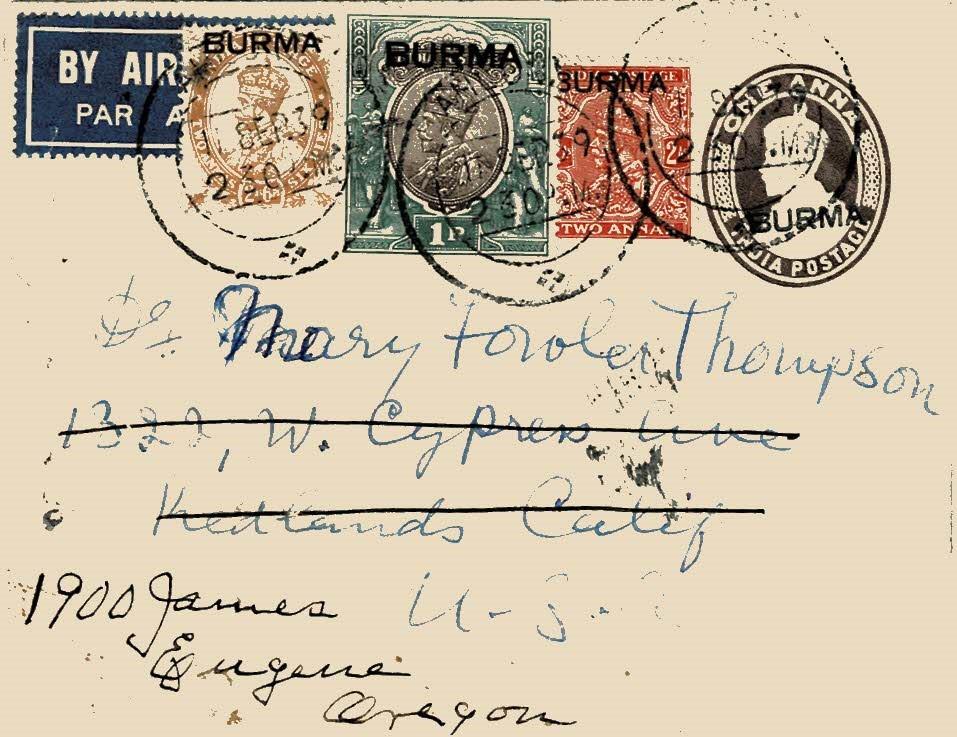 BY AIR
PAR A
BURMA
BURMA
BURMA
BURMA
SEP.39
2 30 P.M
2 30 P.M
1R
2A
TWO ANNAS
ONE ANNA
INDIA POSTAGE
Dr Mary Fowler Thompson
1322, W. Cypress Ave
Redlands Calif
U. S.
1900 James
Eugene
Oregon